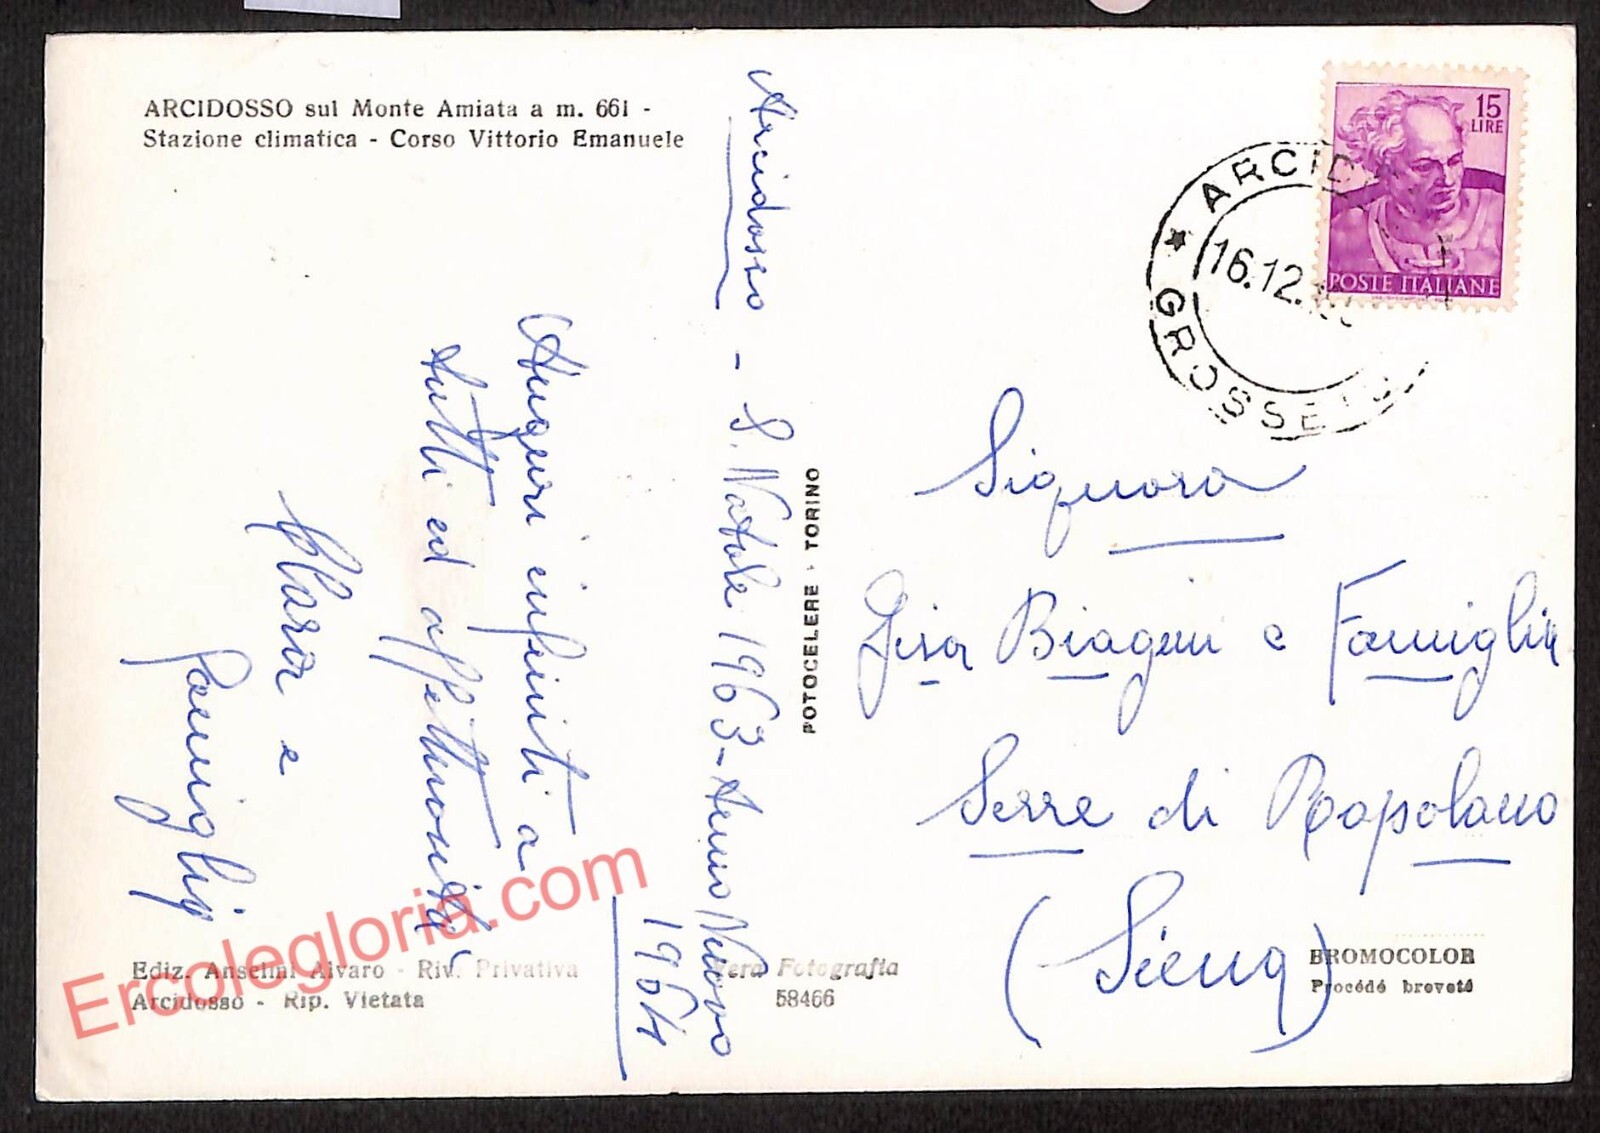 ARCIDOSSO sul Monte Amiata a m. 661 -
Stazione climatica - Corso Vittorio Emanuele
Arcidosso - S. Natale 1963 - Anno Nuovo
1964
Auguri infiniti a
tutti ed affettuosità,
Mara e
famiglia
FOTOCELERE · TORINO
15
LIRE
POSTE ITALIANE
ARCID
16.12.
GROSSETO
Signora
Gisa Biagini e Famiglia
Serre di Rapolano
(Siena)
Ediz. Anselmi Alvaro - Riv. Privativa
Arcidosso - Rip. Vietata
Vera Fotografia
58466
BROMOCOLOR
Procédé breveté
Ercolegloria.com